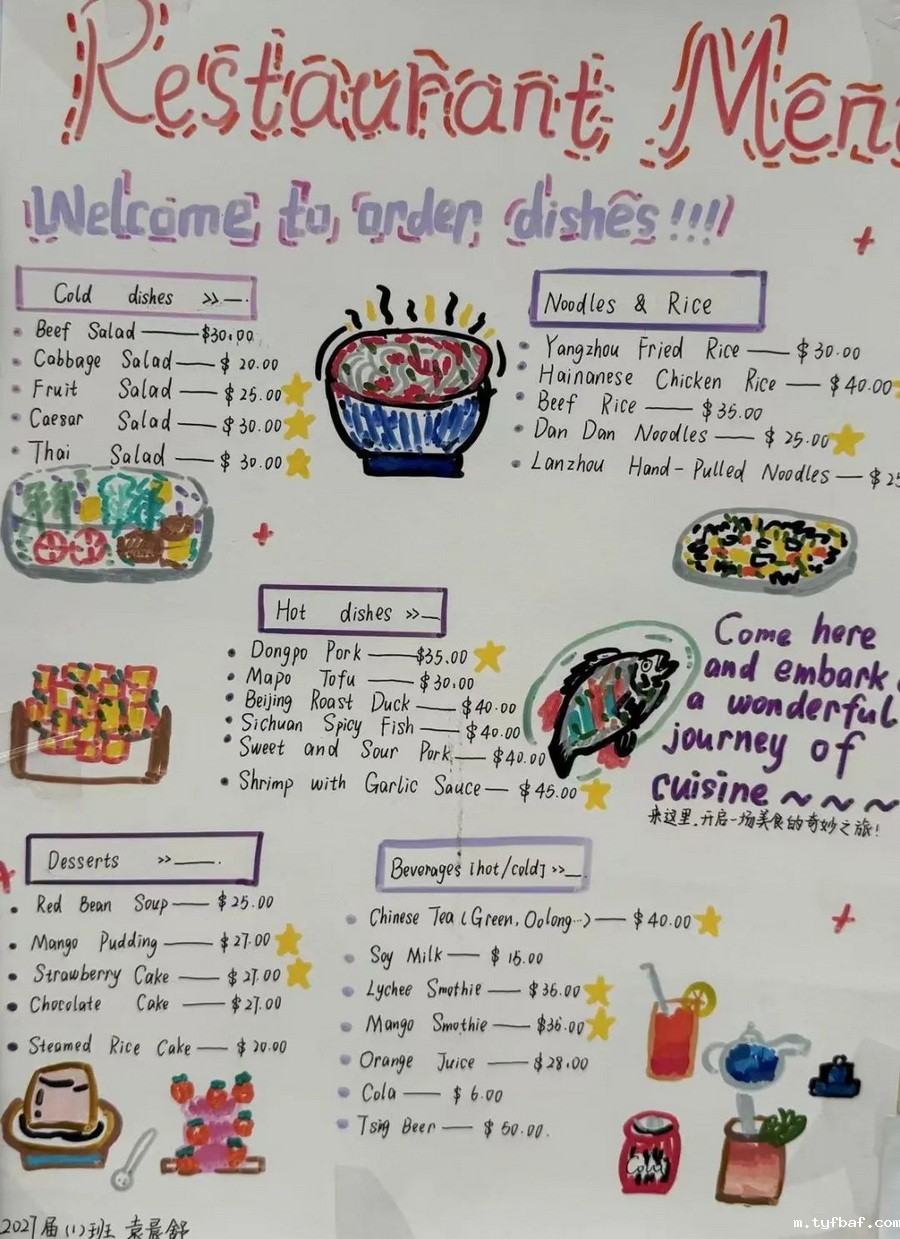 Restaurant Men
Welcome to order dishes!!!
Cold dishes >>—.
Beef Salad — $30.00
Cabbage Salad — $ 20.00
Fruit Salad — $ 25.00
Caesar Salad — $ 30.00
Thai Salad — $ 30.00
Noodles & Rice
Yangzhou Fried Rice — $ 30.00
Hainanese Chicken Rice — $ 40.00
Beef Rice — $ 35.00
Dan Dan Noodles — $ 25.00
Lanzhou Hand-Pulled Noodles — $ 25
Hot dishes >>—
Dongpo Pork — $35.00
Mapo Tofu — $ 30.00
Beijing Roast Duck — $ 40.00
Sichuan Spicy Fish — $ 40.00
Sweet and Sour Pork — $40.00
Shrimp with Garlic Sauce — $ 45.00
Come here
and embark
a wonderful
journey of
cuisine ~ ~ ~
来这里,开启一场美食的奇妙之旅!
Desserts >>—.
Red Bean Soup — $ 25.00
Mango Pudding — $ 27.00
Strawberry Cake — $ 27.00
Chocolate Cake — $ 27.00
Steamed Rice Cake — $ 20.00
Beverages [hot/cold] >>—.
Chinese Tea (Green, Oolong...) — $ 40.00
Soy Milk — $ 15.00
Lychee Smothie — $ 36.00
Mango Smothie — $36.00
Orange Juice — $28.00
Cola — $ 6.00
Tsig Beer — $ 50.00.
Cola
2027届(1)班 袁晨舒
m.tyfbaf.com